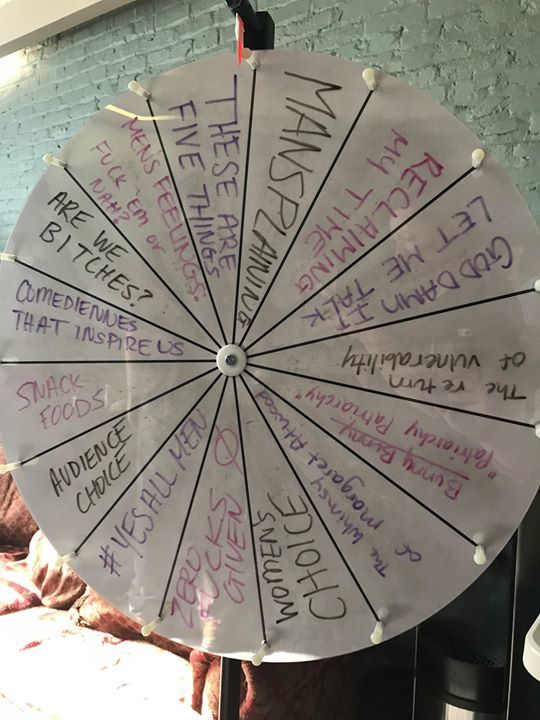 THESE ARE
FIVE THINGS
MANSPLAINING
RECLAIMING
MY TIME
GODDAMN IT
LET ME TALK
The return
of vulnerability
Bunny Bunny
"Patriarchy Patriarchy"
The whimsy
of Margaret Atwood
WOMENS
CHOICE
Ø
ZERO
FUCKS
GIVEN
#YESALLMEN
AUDIENCE
CHOICE
SNACK
FOODS
COMEDIENNES
THAT INSPIRE US
ARE WE
BITCHES?
MENS FEELINGS:
FUCK EM or
NAH?